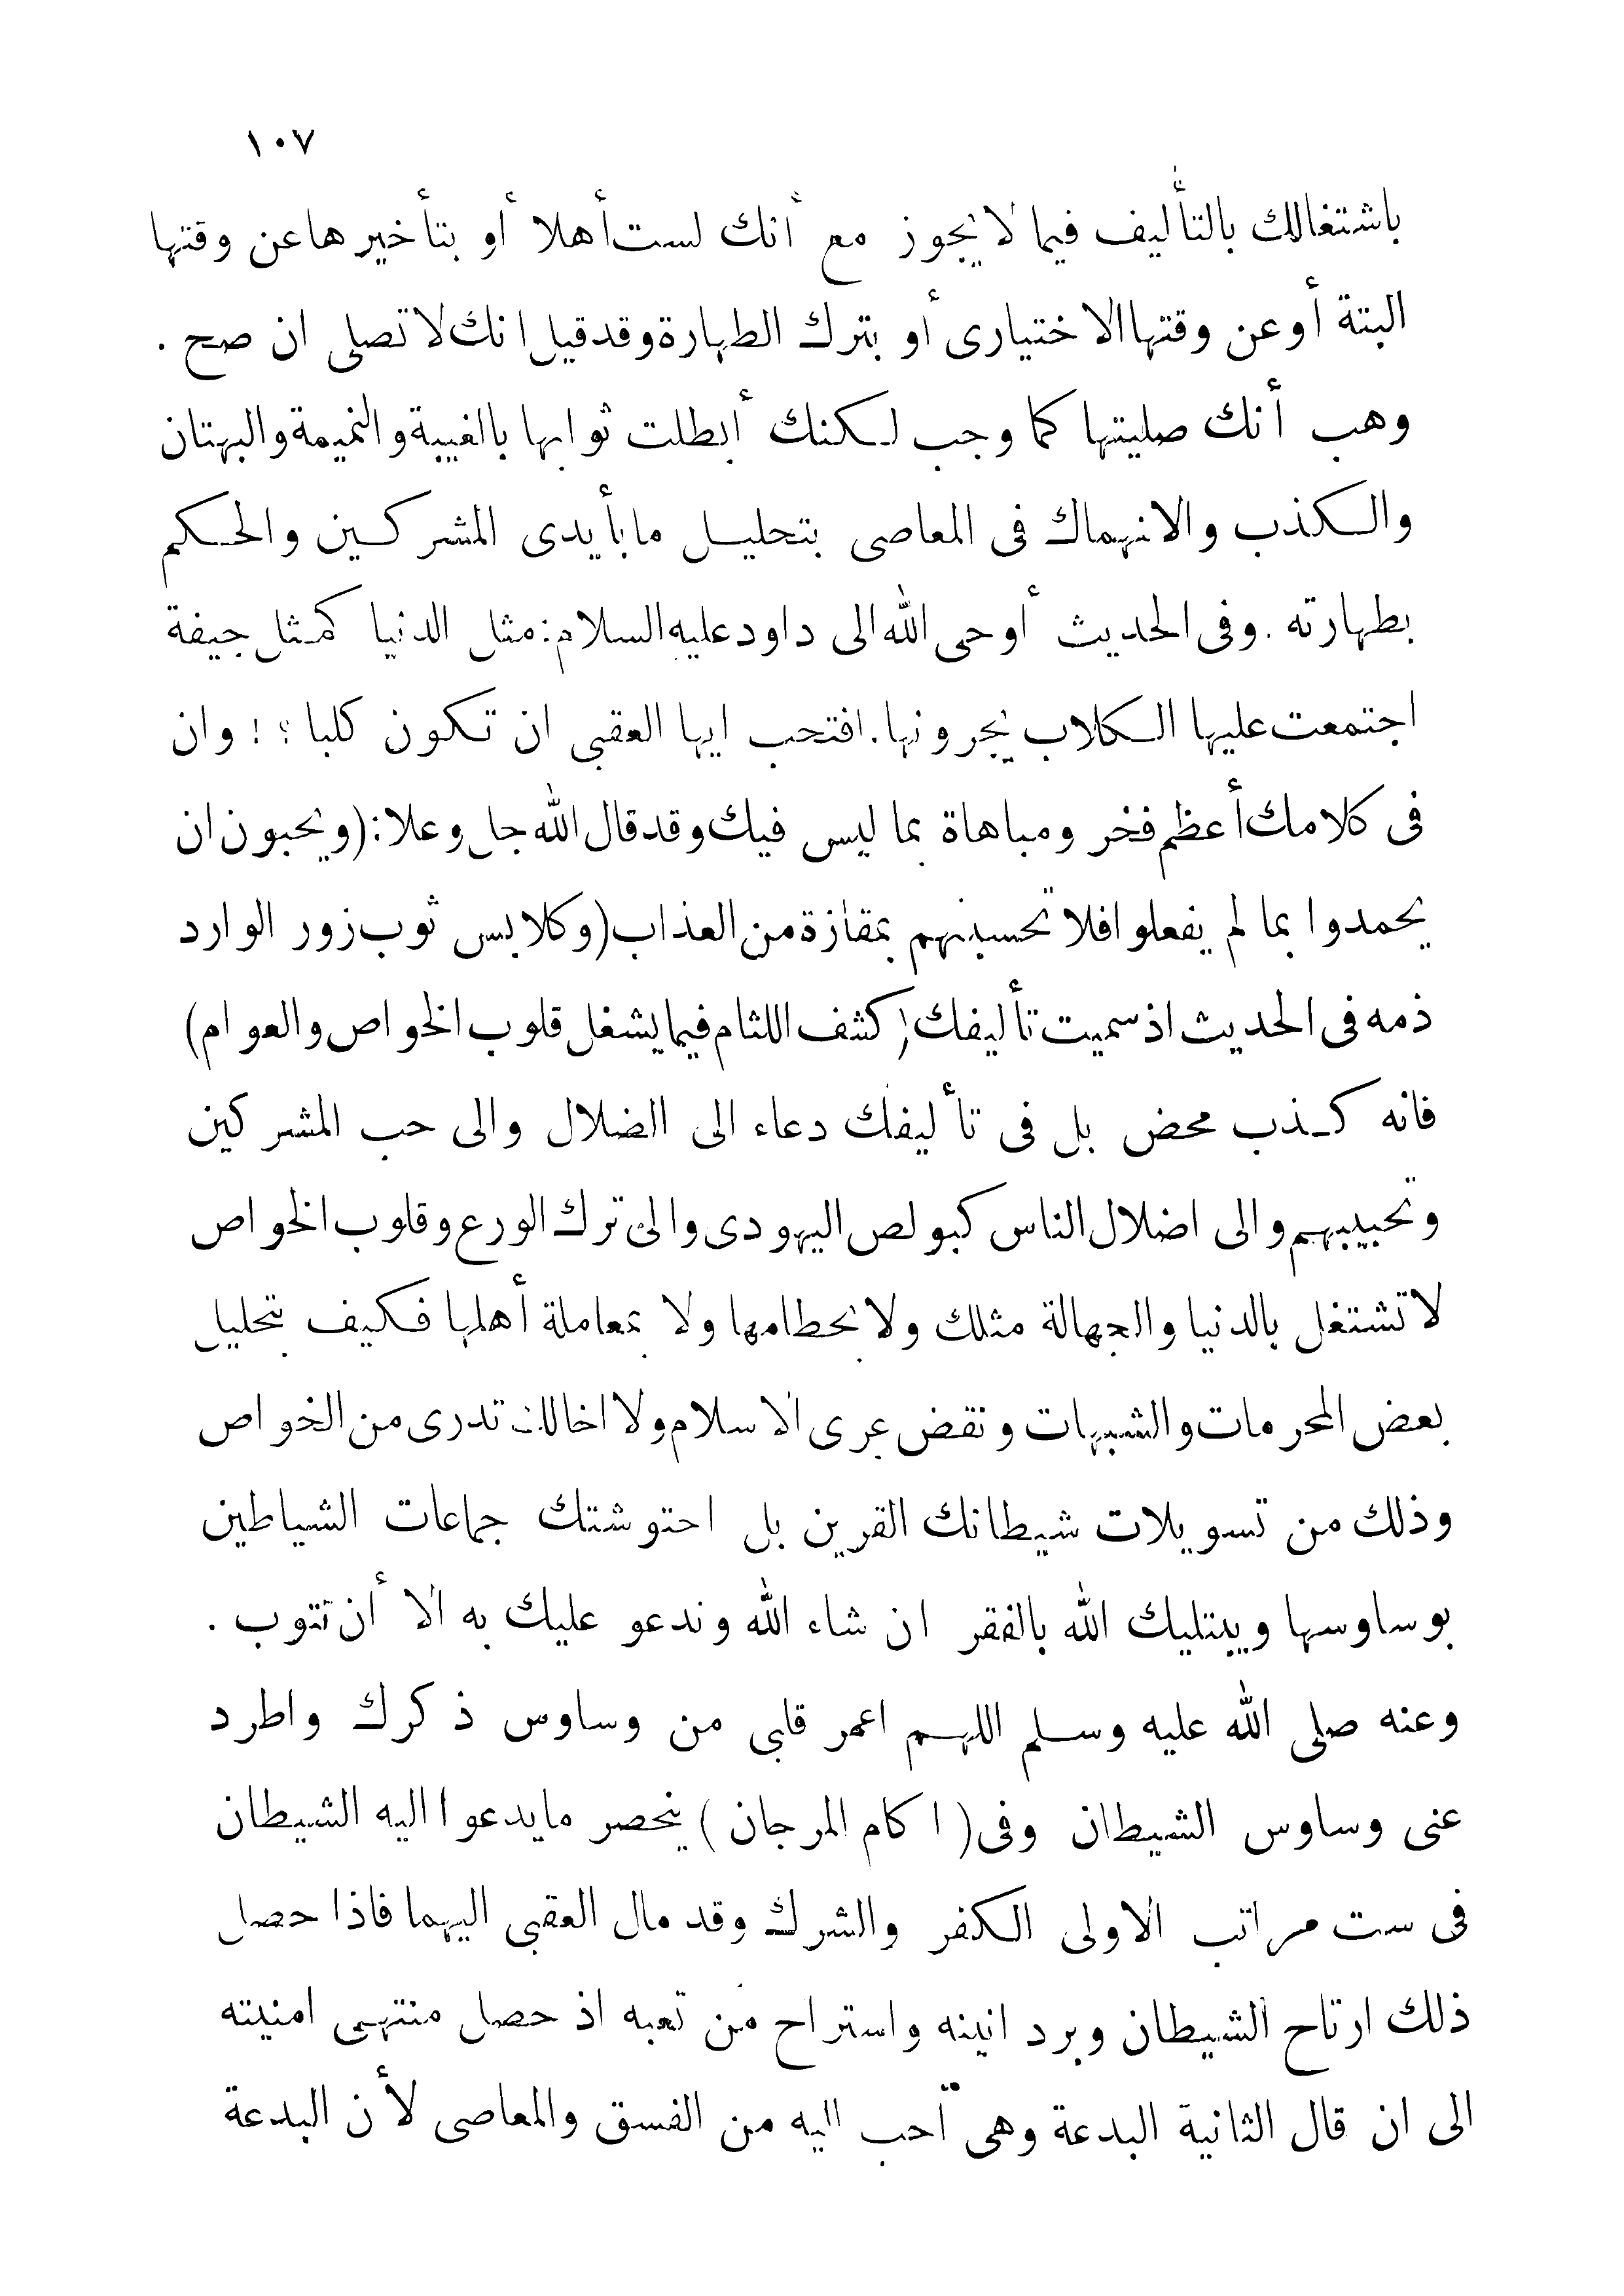 ١٠٧
باشتغالك بالتأليف فيما لا يجوز مع أنك لست أهلا أو بتأخيرها عن وقتها
البتة أو عن وقتها الاختيارى أو بترك الطهارة وقد قيل انك لا تصلى ان صح .
وهب أنك صليتها كما وجب لكنك أبطلت ثوابها بالغيبة والنميمة والبهتان
والكذب والانهماك فى المعاصى بتحليل ما بأيدى المشركين والحكم
بطهارته . وفى الحديث أوحى الله الى داود عليه السلام : مثل الدنيا كمثل جيفة
اجتمعت عليها الكلاب يجرونها . افتحب ايها العقبى ان تكون كلبا ؟ ! وان
فى كلامك أعظم فخر ومباهاة بما ليس فيك وقد قال الله جل وعلا : ( ويحبون ان
يحمدوا بما لم يفعلوا فلا تحسبنهم بمفازة من العذاب ( وكلابس ثوب زور الوارد
ذمه فى الحديث اذ سميت تأليفك ( كشف اللثام فيما يشغل قلوب الخواص والعوام )
فانه كذب محض بل فى تأليفك دعاء الى الضلال والى حب المشركين
وتحبيبهم والى اضلال الناس كبولص اليهودى والى ترك الورع وقلوب الخواص
لا تشتغل بالدنيا والجهالة مثلك ولا بحطامها ولا بمعاملة أهلها فكيف بتحليل
بعض المحرمات والشبهات ونقض عرى الاسلام ولا اخالك تدرى من الخواص
وذلك من تسويلات شيطانك القرين بل احتوشتك جماعات الشياطين
بوساوسها ويبتليك الله بالفقر ان شاء الله وندعو عليك به الا أن تتوب .
وعنه صلى الله عليه وسلم اللهم اعمر قلبى من وساوس ذكرك واطرد
عنى وساوس الشيطان وفى ( اكام المرجان ) ينحصر ما يدعوا اليه الشيطان
فى ست مراتب الاولى الكفر والشرك وقد مال العقبى اليهما فاذا حصل
ذلك ارتاح الشيطان وبرد انينه واستراح من تعبه اذ حصل منتهى امنيته
الى ان قال الثانية البدعة وهى أحب اليه من الفسق والمعاصى لأن البدعة